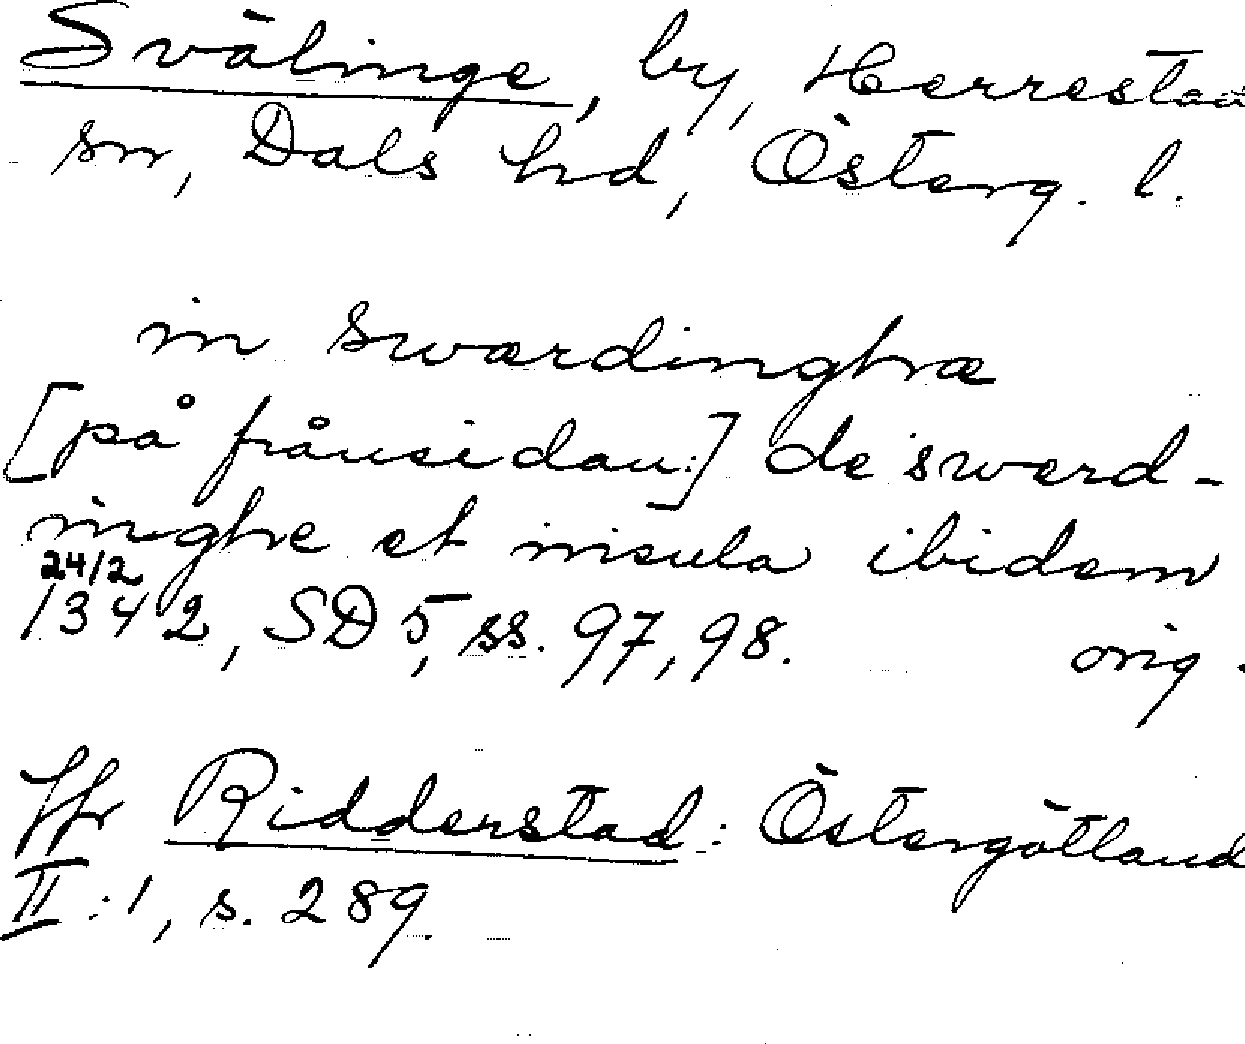 Svälinge, by, Herrestad
sn, Dals hd, Österg. l.
in swærdinghæ
[på frånsidan:] de swerd-
inghe et insula ibidem
24/2
1342, SD 5, ss. 97, 98. orig.
Jfr Ridderstad: Östergötland
II:1, s. 289.